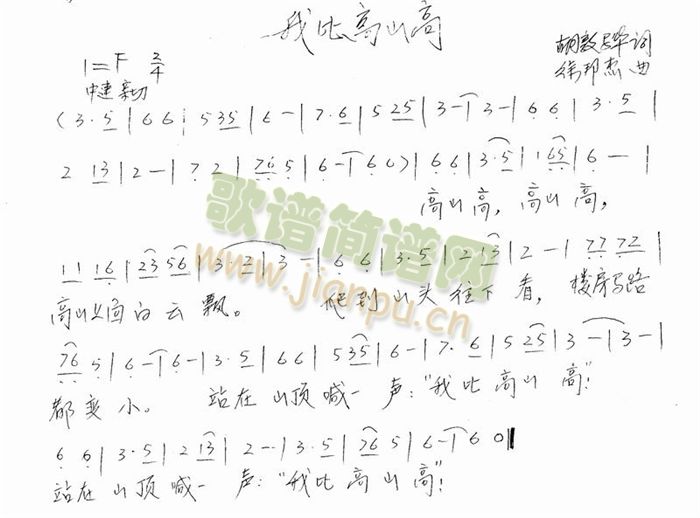 我比高山高
1=F 2/4
胡敦骅词
中速 亲切
徐邦杰 曲
(3·5|66|535|6-|7·6|525|3-|3-|66|3·5|
2 13|2-|72|765|6-|60)|66|3·5|165|6-|
高山高，高山高，
11 16|23 56|3 2|3-|66|3·5|213|2-|77 72|
高山上面白云飘。 爬到山头往下看，楼房马路
76 5|6-|6-|3·5|66|535|6-|7·6|525|3-|3-|
都变小。 站在山顶喊一声：“我比高山高！”
6 6|3·5|2 13|2-|3·5|76 5|6-|6 0‖
站在山顶喊一声：“我比高山高”！
歌谱简谱网
www.jianpu.cn